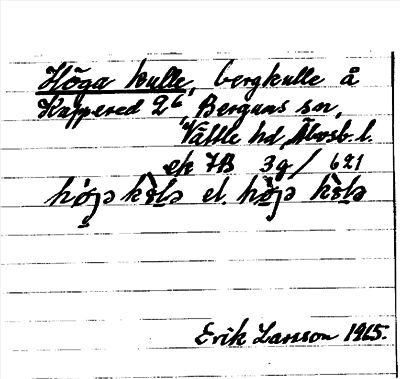 Höga kulle, bergkulle å
Kappered 2⁶, Bergums sn,
Vättle hd, Älvsb. l.
ek 7B 3g / 621
el.
Erik Larsson 1965.